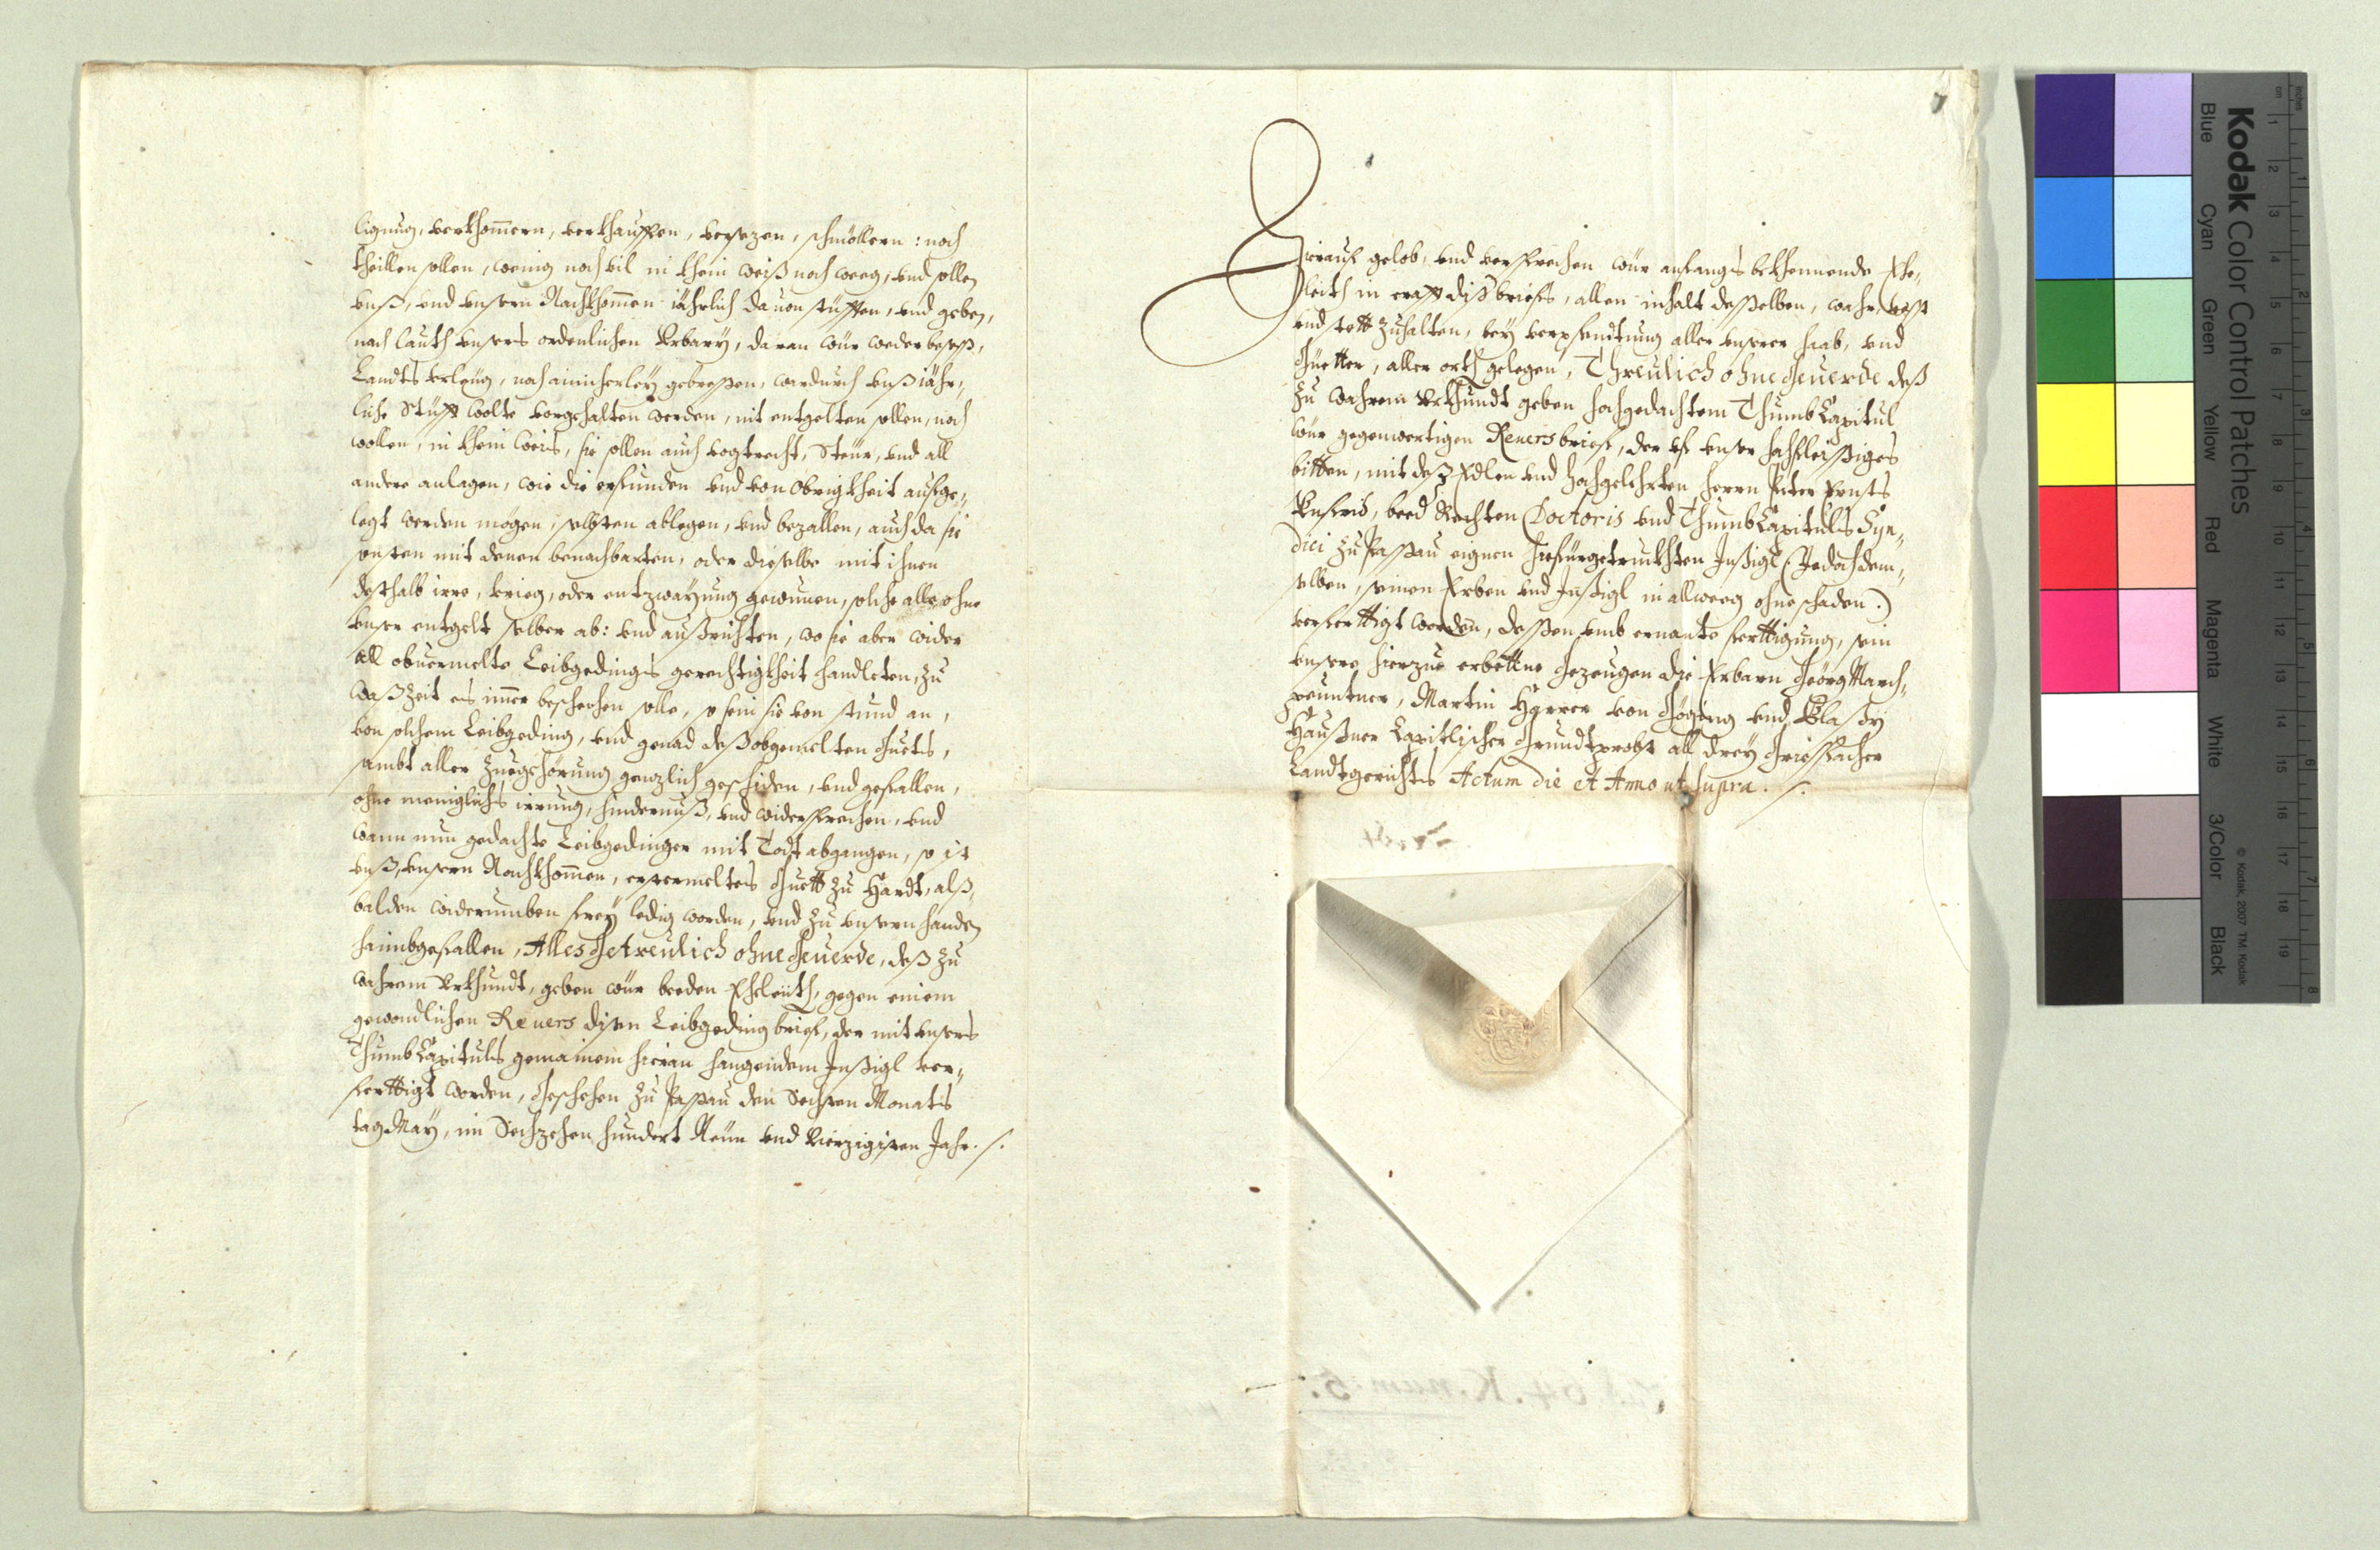 ligung, verkhomern, verkhauffen, versezen, schmöllern: noch
theillen sollen, wenig noch vil in khein weiß noch weeg, und sollen
unß, und unsern Nachkhomen jährlich davon stüfften, und geben,
nach lauth unsers ordenlichen Urbary, daran wür weder besess,
Landts erleüg, noch ainicherley gebressen, wardurch unß jähr,
liche Stüfft wolte vorgehalten werden, nit entgelten sollen, noch
wollen, in khein weis, sie sollen auch vogtrecht, Steür, und all
andere anlagen, wie die erfunden und von Obrigkheit aufge„
legt werden mögen, selbsten ablegen, und bezallen, auch da sie
sonsten mit denen benachbarten, oder dieselbe mit ihnen
desthalb irre, krieg, oder entzwayung gewunen, solche alle ohne
unser entgelt selber ab: und außrichten, wo sie aber wider
all obvermelte Leibgedings gerechtigkheit handleten, zu
waß Zeit es imer beschechen solle, so sein sie von stund an,
von solchem Leibgeding, und genad deß obgemelten Guets,
sambt aller Zuegehörung genzlich geschiden, und gefallen,
ohne meniglichs irrung, hindernuß, und widersprechen, und
wann nun gedachte Leibgedinger mit Todt abgangen, so ist
unß, unsern Nachkhomen, erstermeltes Guett zu Hardt, alß„
balden widerumben frey ledig worden, und zu unsern handen
haimbgefallen, Alles Getreulich ohne Geverde, deß zu
wahrem Urkhundt, geben wür beeden Eheleüth, gegen einem
gewendlichen Revers disen Leibgeding brief, der mit unsers
Thumb Capituls gemainem hieran hangendem Insigl ver„
ferttigt worden, Geschehen zu Passau den Sechsten Monats
tag May, im Sechzehen hundert Neün und Vierzigisten Jahr. /.
Hierauf gelob, und versprechen wür anfangs bekhennende Ehe„
leüth in crafft diß briefs, allen inhalt desselben, wahr, vest
und stett zuhalten, bey verpfendtung aller unserer haab, und
Guetter, aller orth gelegen, Threulich ohne Geuerde deß
zu wahrem Urkhundt geben hochgedachtem Thumb Capitul
wür gegenwertigen Reuersbrief, der uf unser hochfleissiges
bitten, mit deß Edlen und Hochgelehrten, Herrn Peter Ernsts
beed Rechten Doctoris und Thumb Capituls Syn„
dici zu Passau eignen hiefürgetruckhten Insigl (Jedoch dem„
selben, seinen Erben und Insigl in allweeg ohne schaden.)
verferttigt worden, dessen umb ernante ferttigung, sein
unsere hierzue erbettne Gezeugen die Erbarn Geörg March„
peuntner, Martin Härrer von Göging und Blasy
Haußner Capitlischer Grundtprobst all drey Grießbacher
Landtgerichts Actum die et Anno ut supra. /.